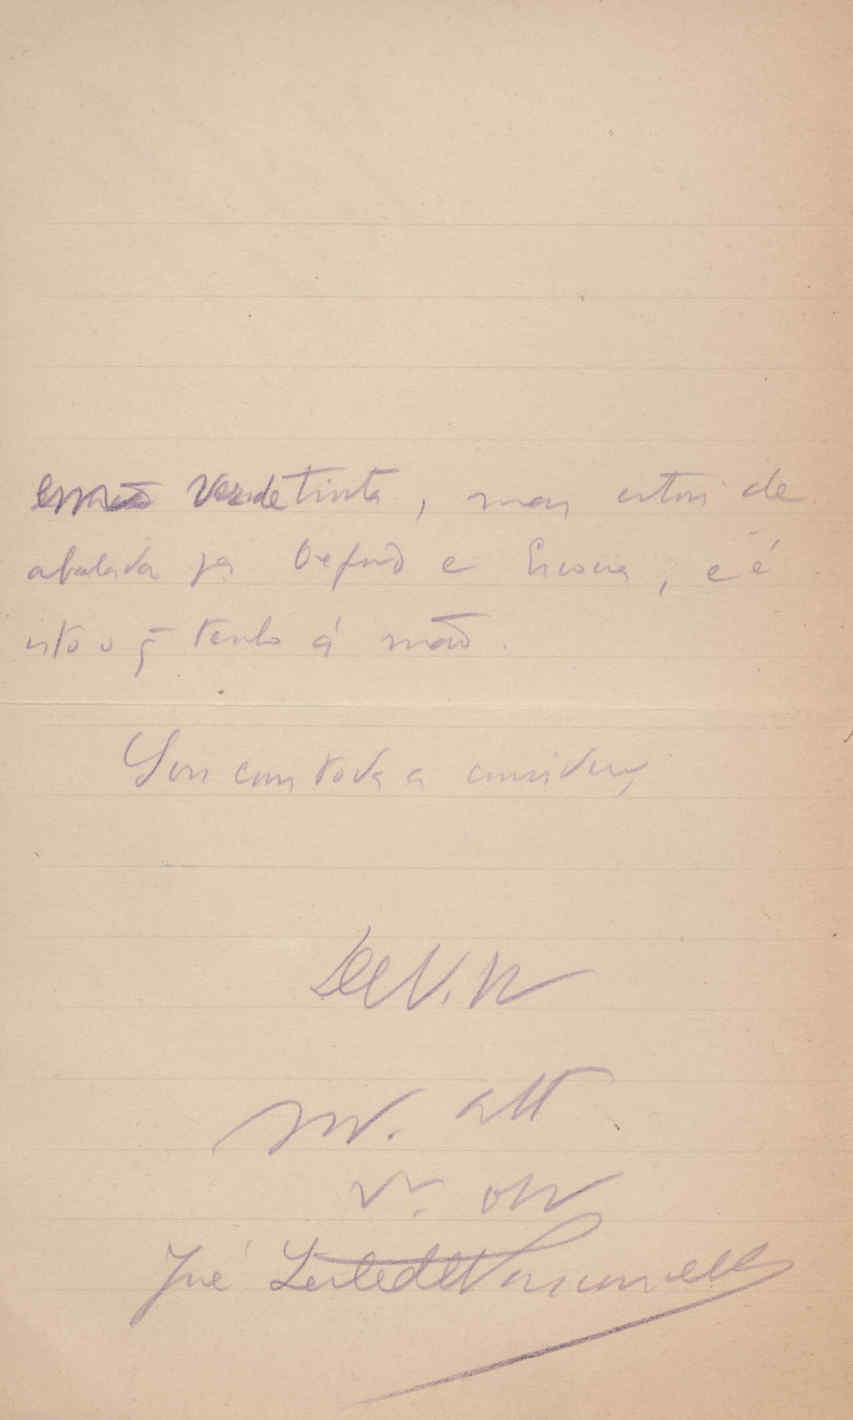 tinta, mas estou de
abalada pa Oxford e Escocia, e é
isto o q̃ tenho á mão.
Sou com toda a consideraç
De V.
m. att
José Leite de Vasconcellos